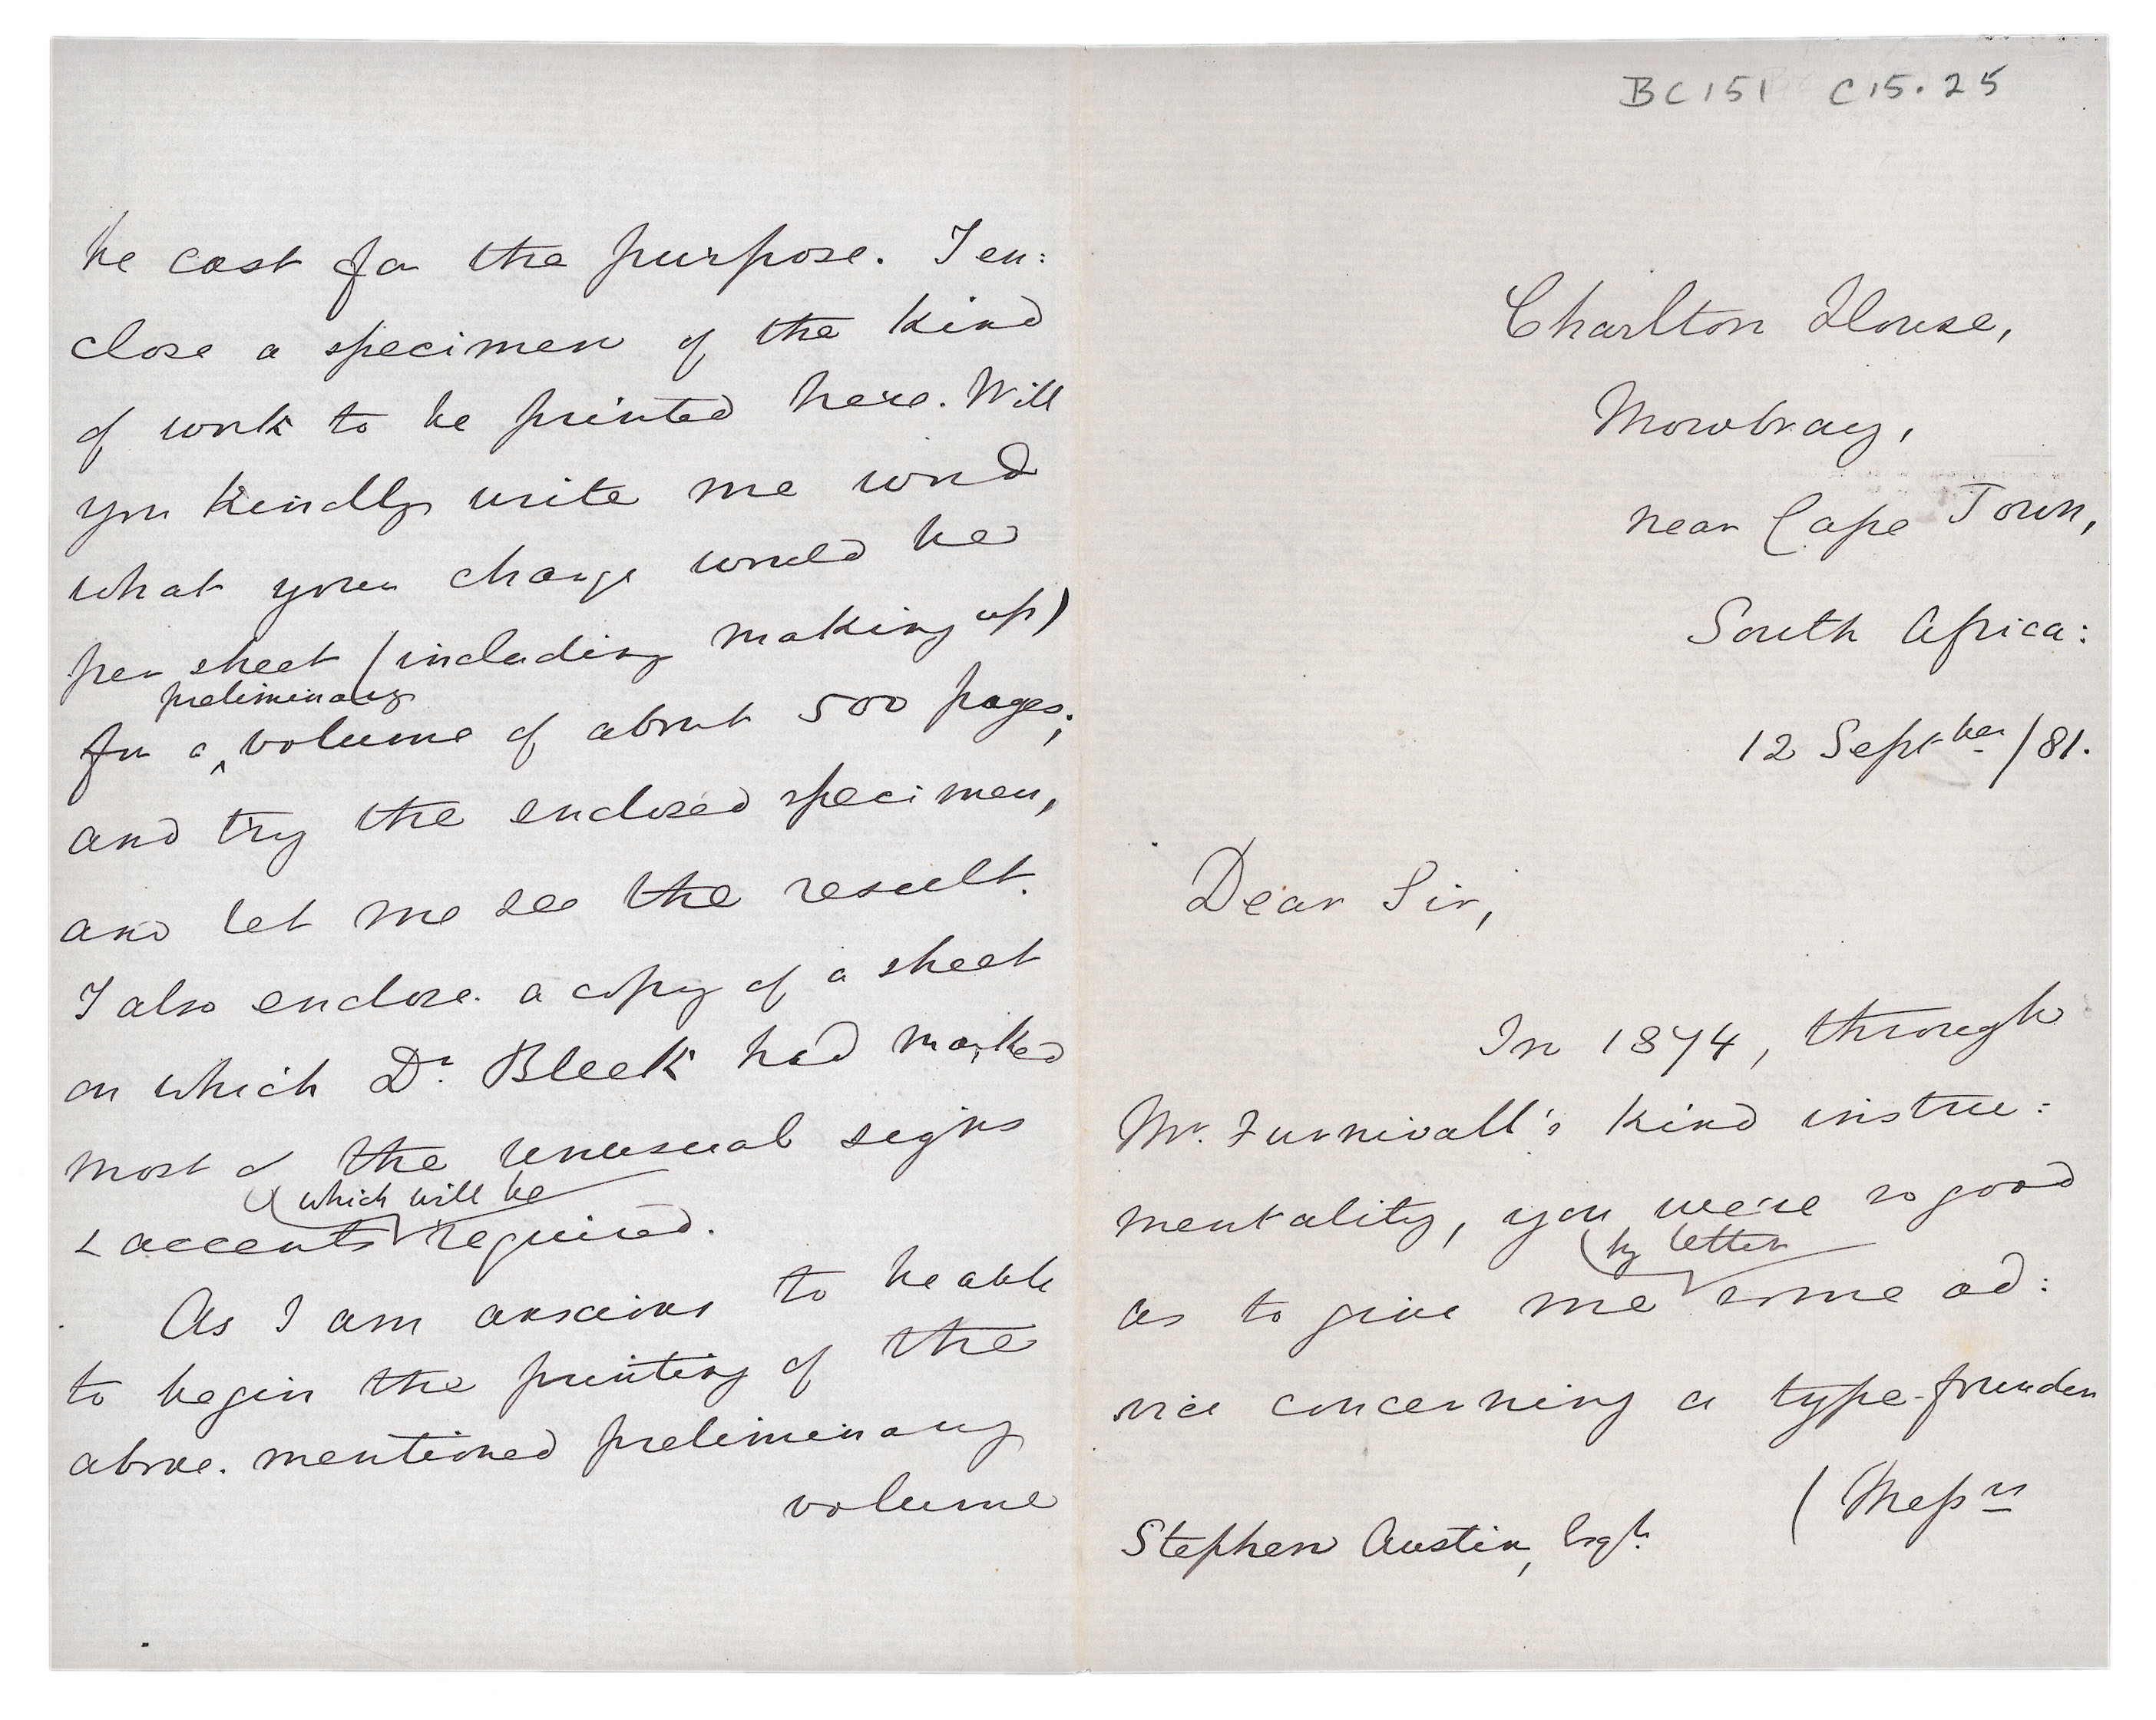 BC151 C15.25
Charlton House,
Mowbray,
near Cape Town,
South Africa:
12 Septber/81.
Dear Sir,
In 1874, through
Mr. Furnivall's kind instru:
mentality, you were so good
by letter
as to give me some ad:
vice concerning a type-founder
(Messrs
Stephen Austin, Esqr.
be cast for the purpose. I en:
close a specimen of the kind
of work to be printed here. Will
you kindly write me word
what your charge would be
per sheet (including making up)
preliminary
for a volume of about 500 pages;
and try the enclosed specimen,
and let me see the result.
I also enclose a copy of a sheet
on which Dr. Bleek had marked
most of the unusual signs
which will be
& accents required.
As I am anxious to be able
to begin the printing of the
above-mentioned preliminary
volume